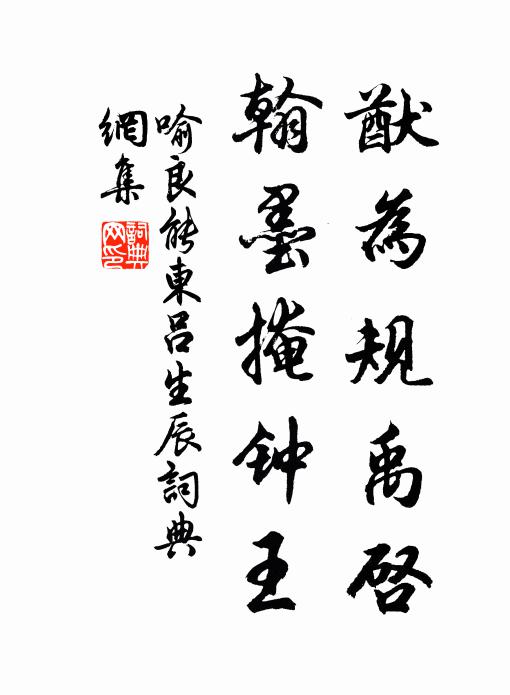 猷為規禹启
翰墨掩钟王
喻良能東呂生辰詞典
網集
詞典
网印